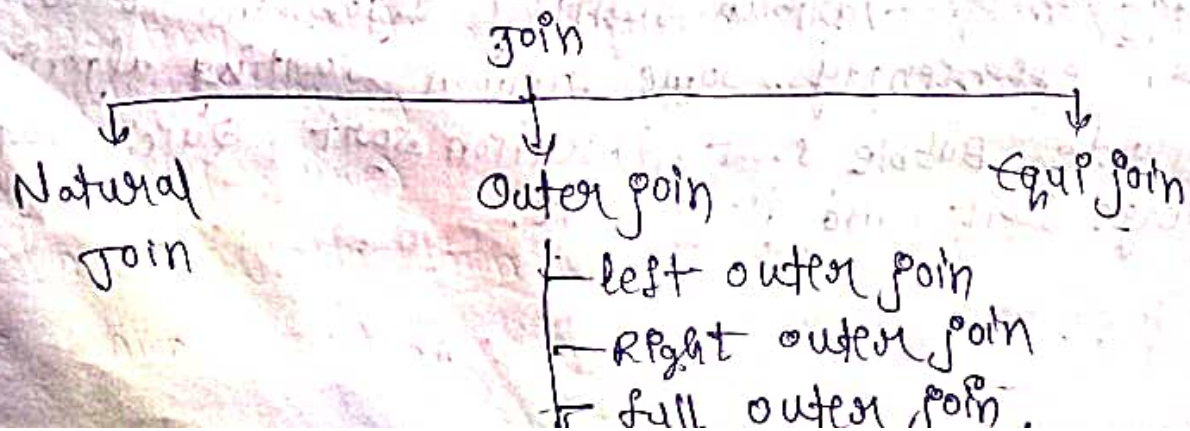 Join
Natural
Join
Outer join
Equi join
left outer join
Right outer join
full outer join.